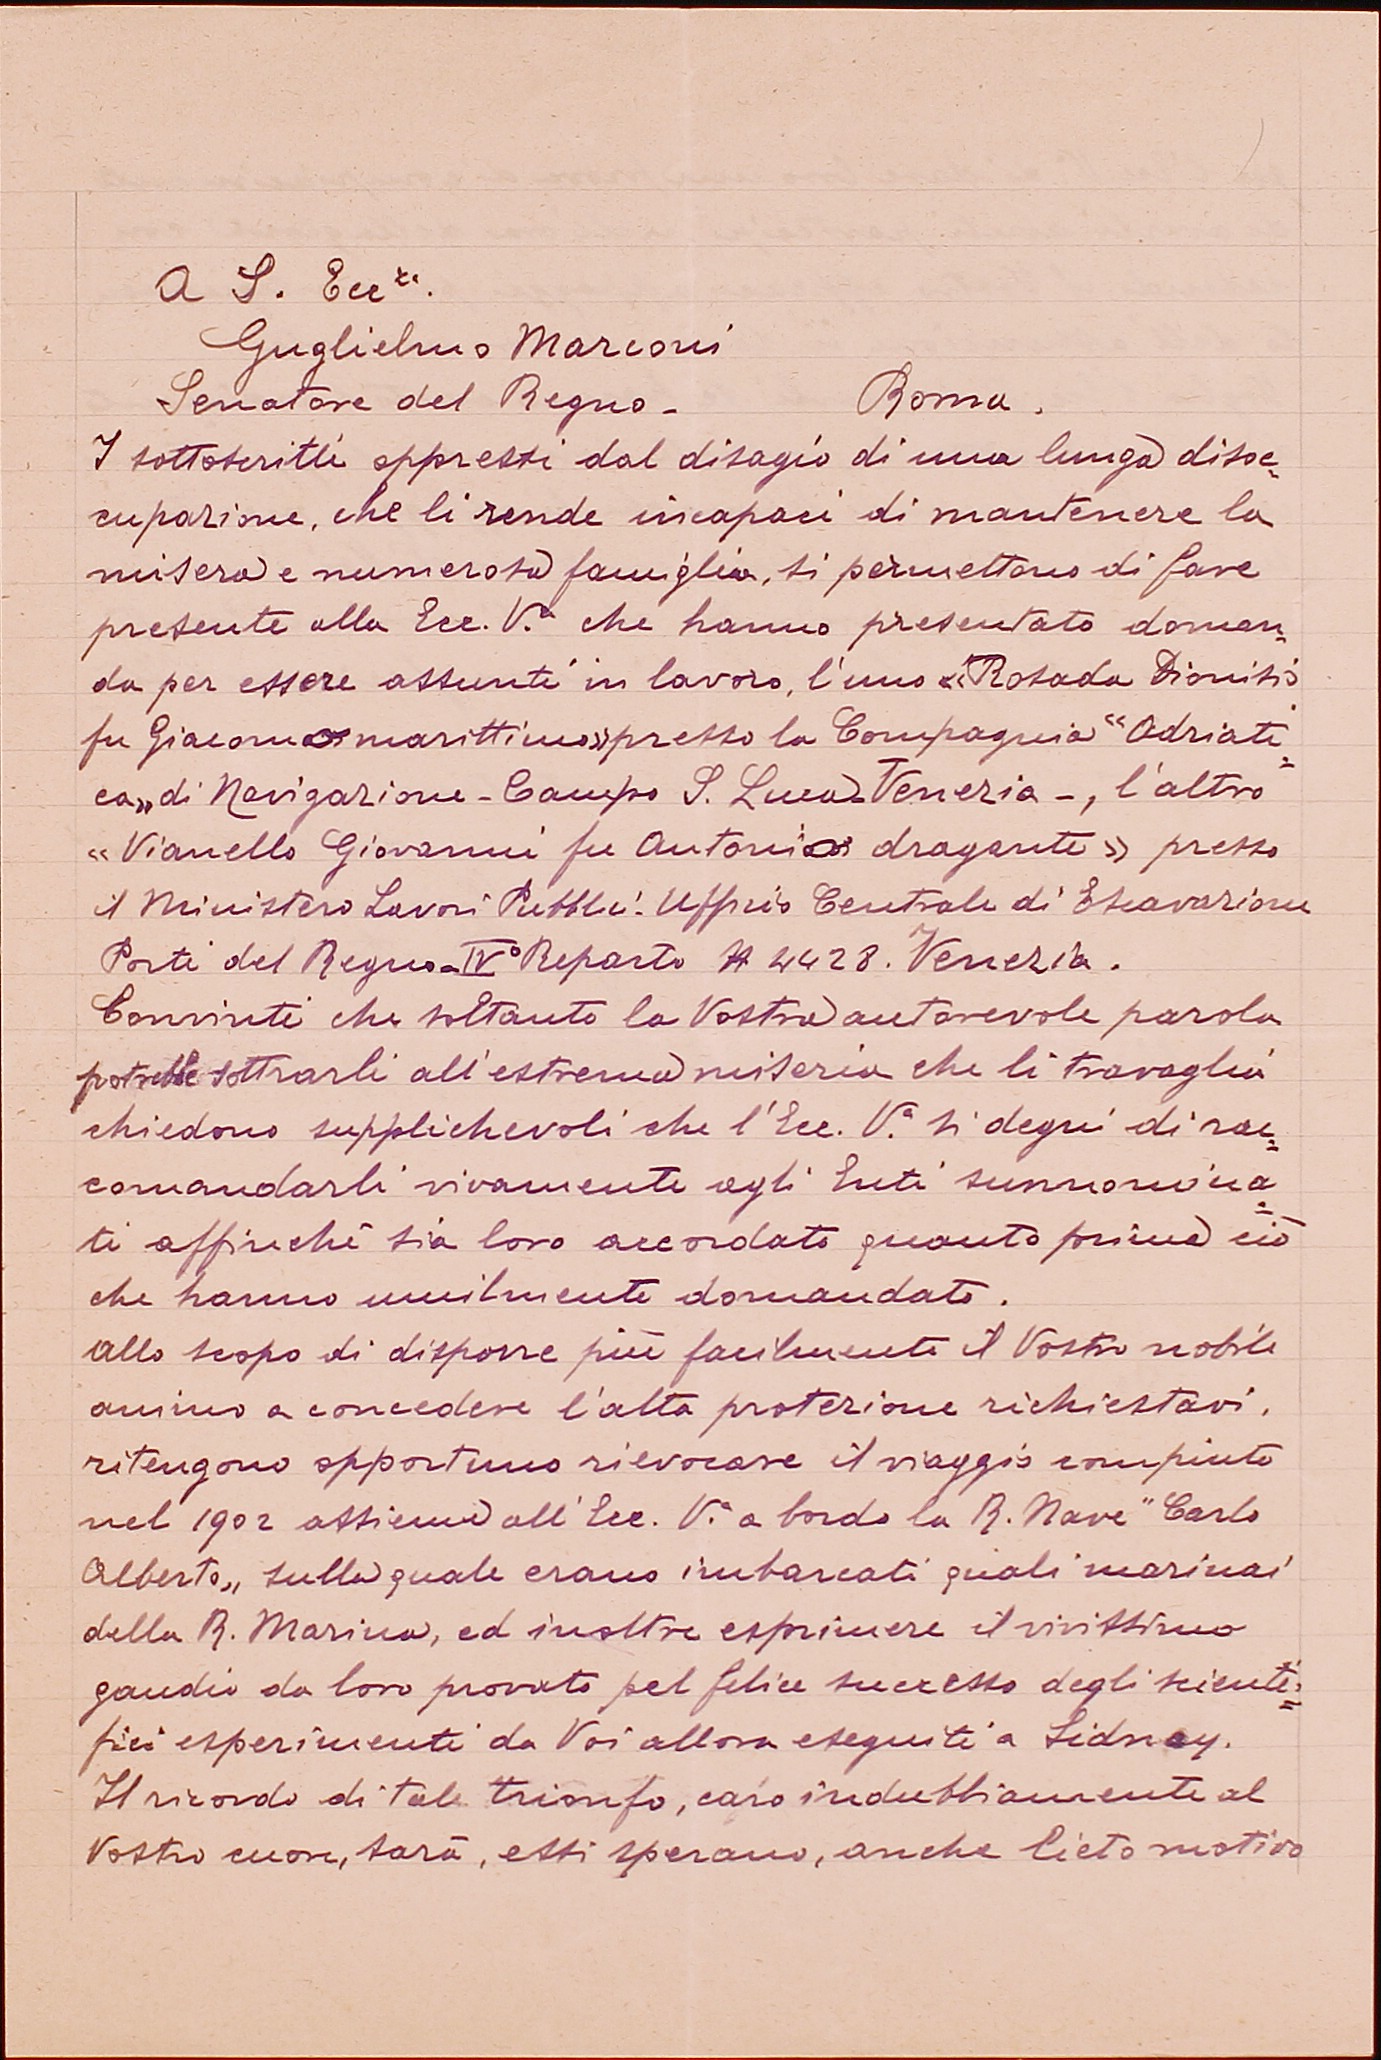 A S. Ecc.za.
Guglielmo Marconi
Senatore del Regno - Roma.
I sottoscritti oppressi dal disagio di una lunga disoc=
cupazione, che li rende incapaci di mantenere la
misera e numerosa famiglia, si permettono di fare
presente alla Ecc. V.a che hanno presentato doman=
da per essere assunti in lavoro, l'uno «Rosada Dionisio
fu Giacomo marittimo» presso la Compagnia "Adriati=
ca" di Navigazione - Campo S. Luca - Venezia -, l'altro
«Vianello Giovanni fu Antonio dragante» presso
il Ministero Lavori Pubblici - Ufficio Centrale di Escavazione
Porti del Regno - IVº Reparto N 4428. Venezia.
Convinti che soltanto la Vostra autorevole parola
potrebbe sottrarli all'estrema miseria che li travaglia
chiedono supplichevoli che l'Ecc. V.a si degni di rac=
comandarli vivamente agli Enti sunnomina=
ti affinchè sia loro accordato quanto prima ciò
che hanno umilmente domandato.
Allo scopo di disporre più facilmente il Vostro nobile
animo a concedere l'alta protezione richiestavi,
ritengono opportuno rievocare il viaggio compiuto
nel 1902 assieme all'Ecc. V.a a bordo la R. Nave "Carlo
Alberto", sulla quale erano imbarcati quali marinai
della R. Marina, ed inoltre esprimere il vivissimo
gaudio da loro provato pel felice successo degli scienti=
fici esperimenti da Voi allora eseguiti a Sidney.
Il ricordo di tale trionfo, caro indubbiamente al
Vostro cuore, sarà, essi sperano, anche lieto motivo